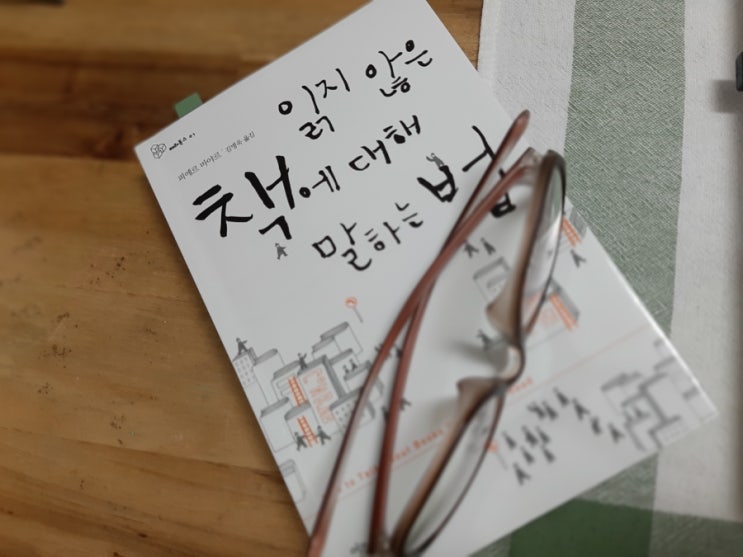 읽지 않은
책에 대해
말하는 법
피에르 바야르·김병욱 옮김
to Talk
Books